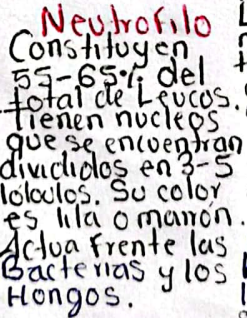 Neutrofilo
Constituyen
55-65% del
total de Leucos.
tienen nucleos
que se encuentran
divididos en 3-5
loloulos. Su color
es lila o marrón.
Actua frente las
Bacterias y los
Hongos.